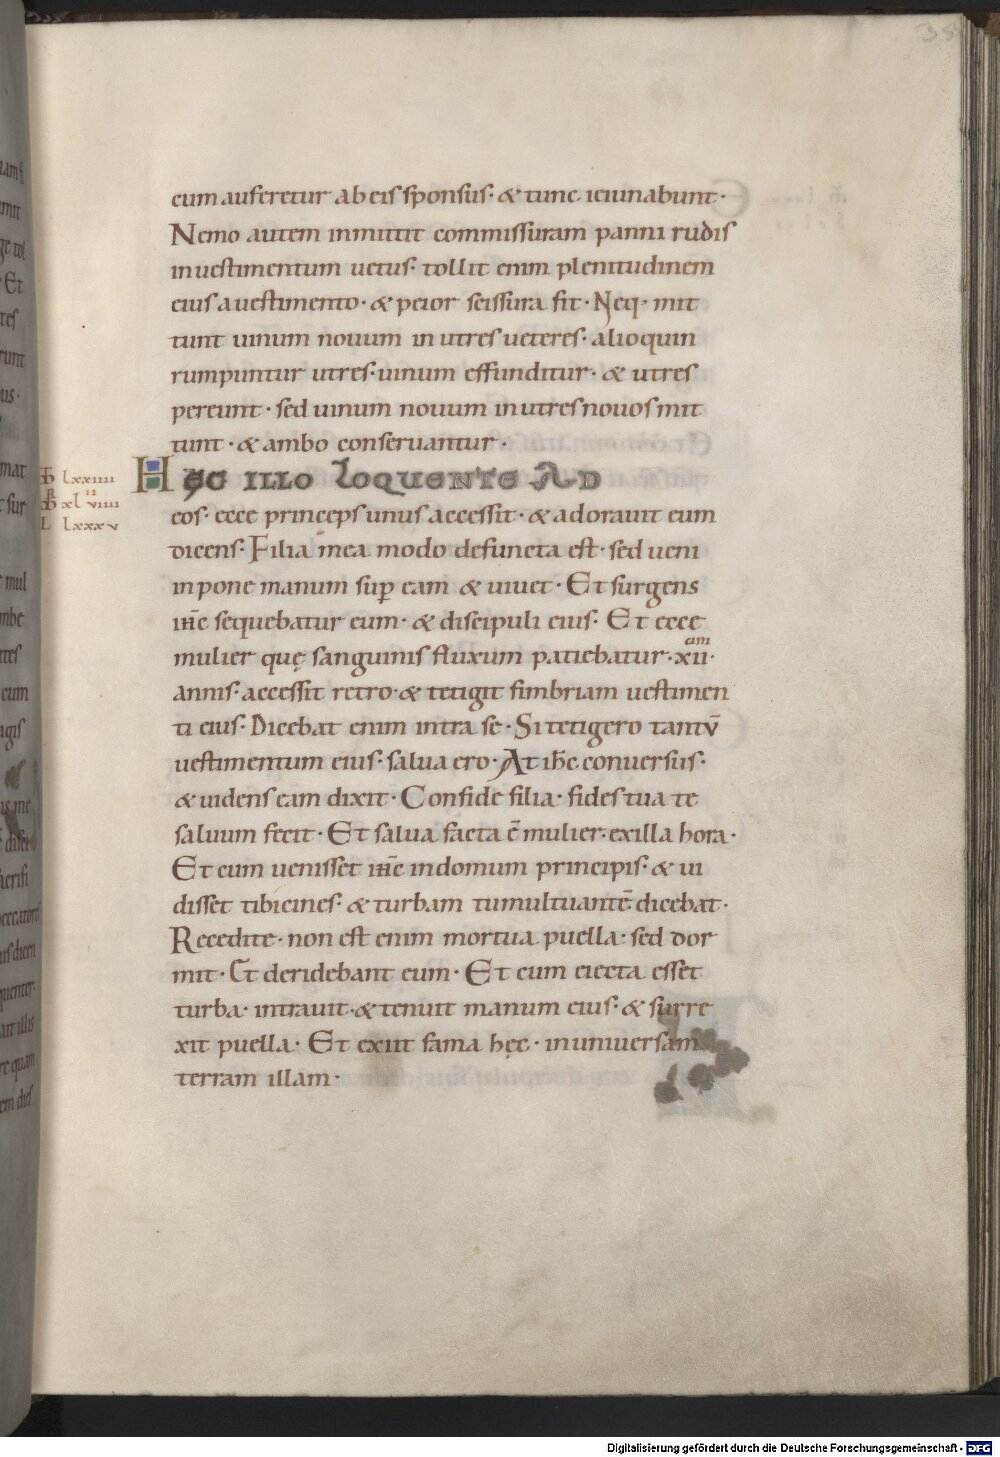 35
cum auferetur ab eis sponsus· & tunc ieiunabunt·
Nemo autem inmittit commissuram panni rudis
in uestimentum uetus· tollit enim plenitudinem
eius a uestimento· & peior scissura fit· Neq· mit
tunt uinum nouum in utres ueteres· alioquin
rumpuntur utres· uinum effunditur· & utres
pereunt· sed uinum nouum in utres nouos mit
tunt· & ambo conseruantur·
HĘC ILLO LOQUENTE AD
lxxiiii
xl viiii
L lxxxv
eos· ecce princeps unus accessit· & adorauit eum
dicens· Filia mea modo defuncta est· sed ueni
inpone manum sup̄ eam & uiuet· Et surgens
ih̄c sequebatur eum· & discipuli eius· Et ecce
mulier quę sanguinis fluxum patiebatur· xii·
cim
annis· accessit retro· & tetigit fimbriam uestimen
ti eius· Dicebat enim intra se· Si tetigero tantū
uestimentum eius· salua ero· At ih̄c conuersus·
& uidens eam dixit· Confide filia· fides tua te
saluum fecit· Et salua facta ē mulier· ex illa hora·
Et cum uenisset ih̄c in domum principis· & ui
disset tibicines· & turbam tumultuantē dicebat·
Recedite· non est enim mortua puella· sed dor
mit· Et deridebant eum· Et cum eiecta esset
turba· intrauit· & tenuit manum eius· & surre
xit puella· Et exiit fama hęc· in uniuersam
terram illam·
Digitalisierung gefördert durch die Deutsche Forschungsgemeinschaft - DFG